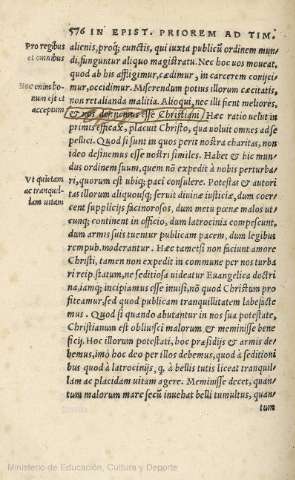 576 IN EPIST. PRIOREM AD TIM.
Pro regibus
et omnibus
Nec enim bo-
num est et
acceptum
Vt quietam
ac tranquil-
lam uitam
alienis, proq́; cunctis, qui iuxta publicũ ordinem mun-
di, funguntur aliquo magistratu. Nec hoc uos moueat,
quod ab his affligimur, cædimur, in carcerem conijci-
mur, occidimur. Miserendum potius illorum cæcitatis,
non retalianda malitia. Alioqui, nec illi fient meliores,
& nos desinemus esse Christiani. Hæc ratio uelut in
primis efficax, placuit Christo, qua uoluit omnes adse
pellici. Quod si sunt in quos perit nostra charitas, non
ideo desinemus esse nostri similes. Habet & hic mun-
dus ordinem suum, quem nõ expedit à nobis perturba-
ri, quorum est ubiq; paci consulere. Potestas & autori
tas illorum aliquousq; seruit diuinæ iustitiæ, dum coer-
cent supplicijs facinorosos, dum metu pœnæ malos ut-
cunq; continent in officio, dum latrocinia compescunt,
dum armis suis tuentur publicam pacem, dum legibus
rempub. moderantur. Hæc tametsi non faciunt amore
Christi, tamen non expedit in commune per nos turba
ri reip. statum, ne seditiosa uideatur Euangelica doctri
na, iamq; incipiamus esse inuisi, nõ quod Christum pro
fiteamur, sed quod publicam tranquillitatem labefacte
mus. Quod si quando abutantur in nos sua potestate,
Christianum est obliuisci malorum & meminisse bene
ficij. Hoc illorum potestati, hoc præsidijs & armis de-
bemus, imò hoc deo per illos debemus, quod à seditioni
bus quod à latrocinijs, q̃ à bellis tutis liceat tranquil-
lam ac placidam uitam agere. Meminisse decet, quan-
tum malorum mare secũ inuehat belli tumultus, quan-
tum
Ministerio de Educación, Cultura y Deporte